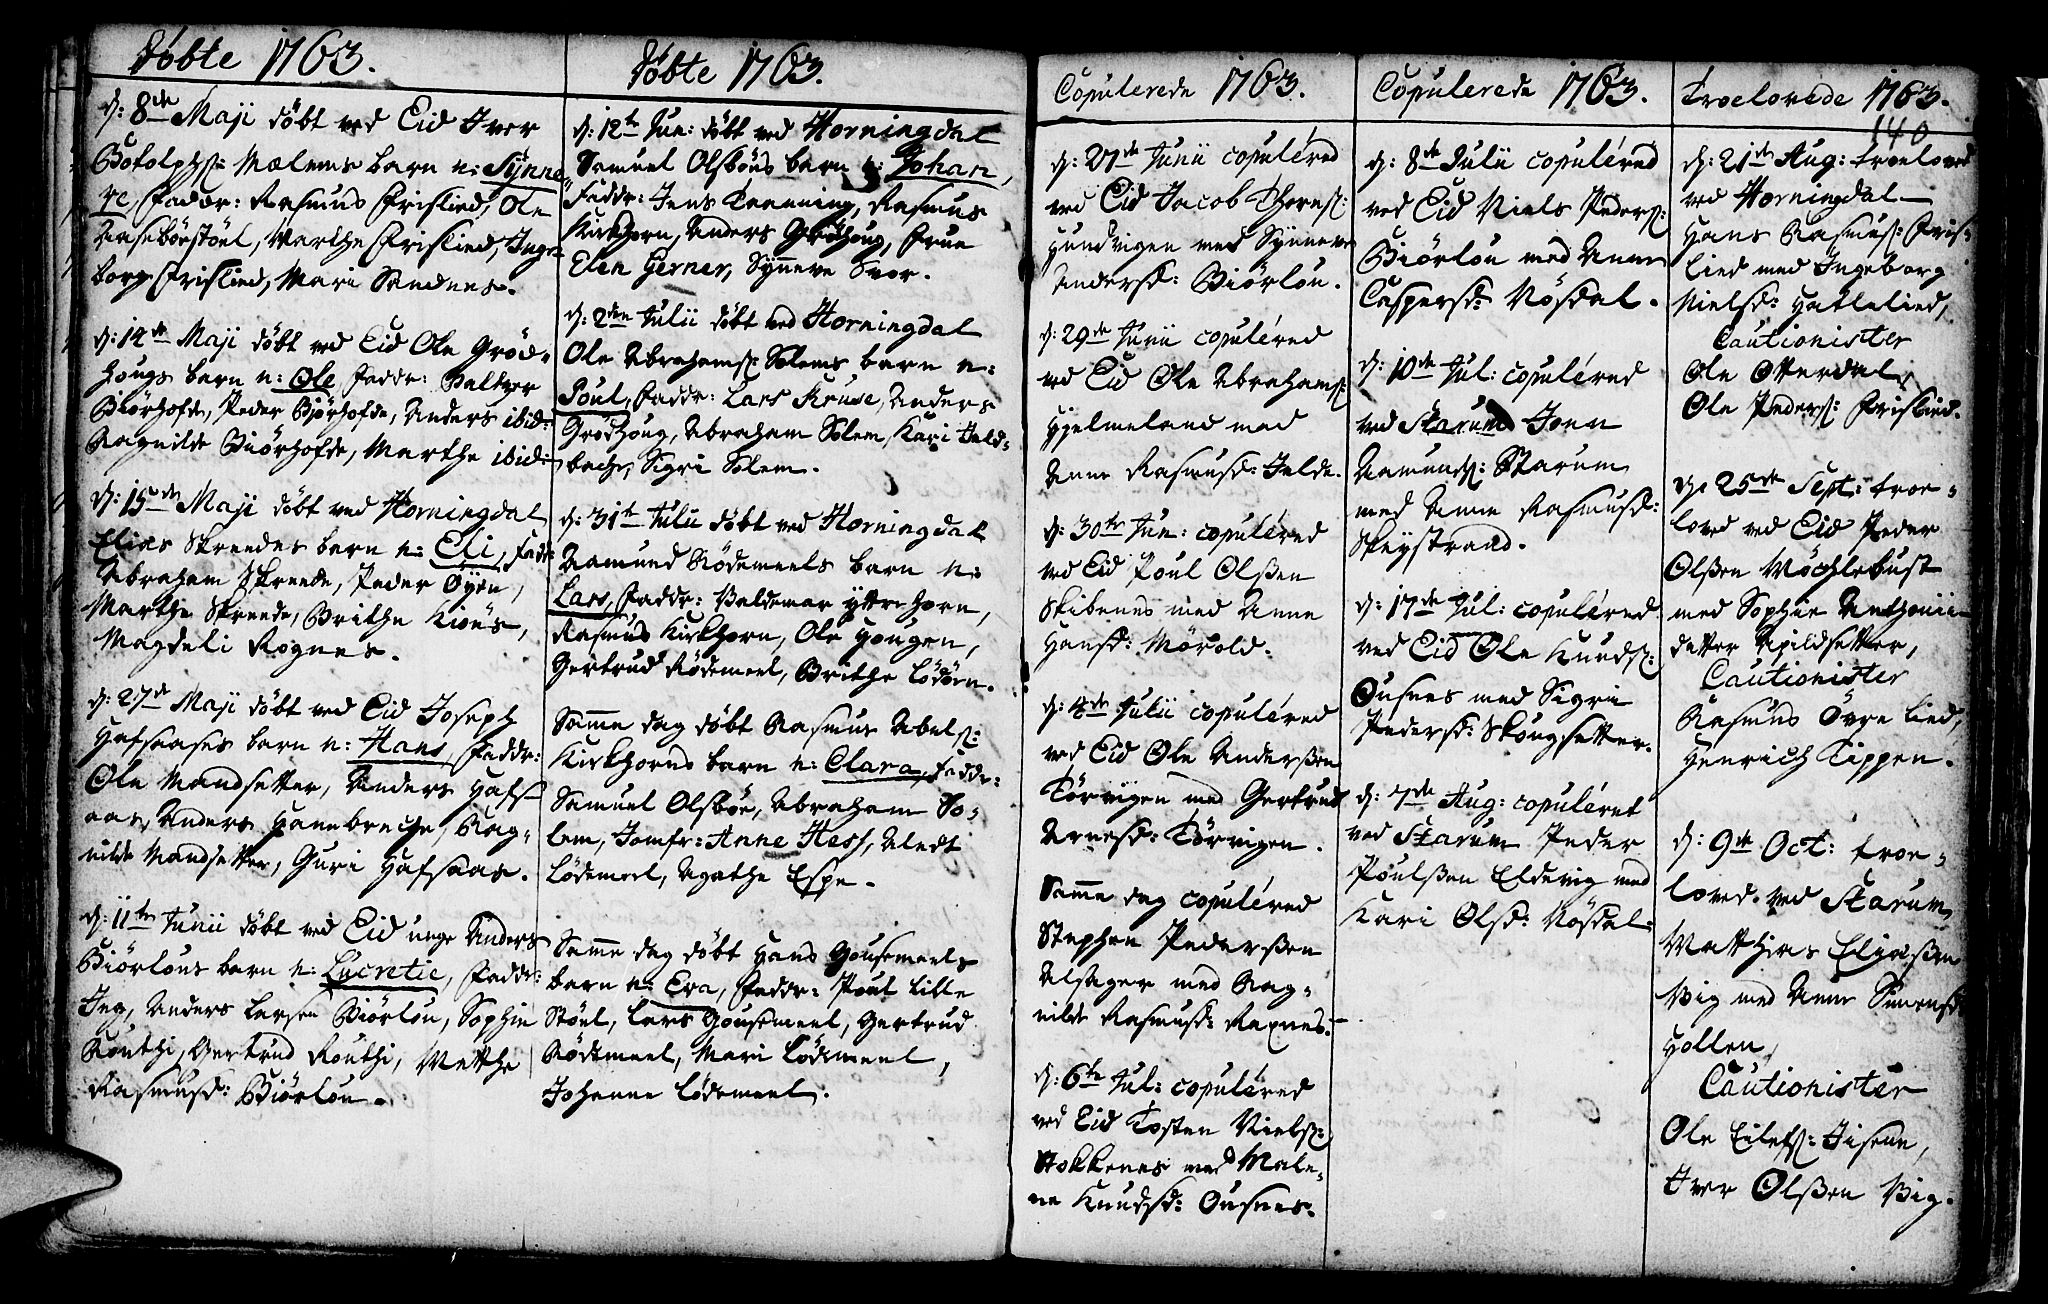 Døbte 1763.
d: 8de Maji døbt ved Eid Iver
Botolphs: Mælems barn n: Synne
ve, Faddr: Rasmus Frislied, Ole
Aasebøestøel, Marthe Frislied, Inge
borg Frislied, Mari Sandnes.
d: 14de Maji døbt ved Eid Ole Grød-
hougs barn n: Ole, Faddr: Baltzer
Biørhofde, Peder Biørhofde, Anders ibid:
Ragnilde Biørhofde, Marthe ibid:
d: 15de Maji døbt ved Horningdal
Elias Skreedes barn n: Eli, Faddr:
Abraham Skreede, Peder Øyen,
Marthe Skreede, Brithe Kiøes,
Magdeli Rognes.
d: 27de Maji døbt ved Eid Joseph
Hafsaases barn n: Hans, Faddr:
Ole Mandsetter, Anders Hafs
aas, Anders Hanebreche, Rag-
nilde Mandsetter, Guri Hafsaas.
d: 11te Junii døbt ved Eid unge Anders
Biørlous barn n: Lucretie, Faddr:
Jeg, Anders Larsen Biørlou, Sophie
Routhi, Gertrud Routhi, Mette
Rasmusd: Biørlou.
Døbte 1763.
d: 12te Jun: døbt ved Horningdal
Samuel Olsbøes barn n: Johan,
Faddr: Jens Tronning, Rasmus
Kirkhorn, Anders Grødhoug, Frue
Elen Gerner, Synneve Svor.
d: 2den Julii døbt ved Horningdal
Ole Abrahams: Solems barn n:
Poul, Faddr: Lars Kruse, Anders
Grødhoug, Abraham Solem, Kari Indd-
bache, Sigri Solem.
d: 31te Julii døbt ved Horningdal
Aamund Rødemeels barn n:
Lars, Faddr: Valdemar Yttrehorn,
Rasmus Kirkhorn, Ole Hougen,
Gertrud Rødemeel, Brithe Lødøen.
Samme dag døbt Rasmus Abels:
Kirkhorns barn n: Clara, Faddr:
Samuel Olsbøe, Abraham So-
lem, Jomfr: Anne Hess, Aledt
Lødemeel, Agathe Espe.
Samme dag døbt Hans Gousemeels
barn n: Eva, Faddr: Poul Lille
Støel, Lars Gousemeel, Gertrud
Rødemeel, Mari Lødemeel,
Johanne Lødemeel.
Copulerede 1763.
d: 27de Junii copuléred
ved Eid Jacob Thores:
Hundvigen med Synneve
Andersd: Biørlou.
d: 29de Junii copuléred
ved Eid Ole Abrahams:
Hjelmeland med
Anne Rasmusd: Ielde.
d: 30te Jun: copuléred
ved Eid Poul Olssen
Skibenes med Anne
Hansd: Mørold.
d: 4de Julii copuléred
ved Eid Ole Anderssen
Tørvigen med Gertrud
Arnesd: Tørvigen.
Samme dag copuléred
Stephen Pederssen
Alsager med Rag-
nilde Rasmusd: Raxnes.
d: 6te Jul: copuléred
ved Eid Tosten Niels:
Stokkenes med Male-
ne Knudsd: Ousnes.
Copulerede 1763.
d: 8de Julii copuléred
ved Eid Niels Peders:
Biørlou med Anne
Caspersd: Nøsdal.
d: 10de Jul: copuléred
ved Starum Joen
Aamunds: Starum
med Anne Rasmusd:
Skeystrand.
d: 17de Jul: copuléred
ved Eid Ole Knuds:
Ousnes med Sigri
Pedersd: Skougsetter.
d: 7de Aug: copuléret
ved Starum Peder
Poulssen Eldevig med
Kari Olsd: Nøsdal.
Troelovede 1763.
140
d: 21de Aug: troeloved
ved Horningdal
Hans Rasmus: Fris-
lied med Ingeborg
Nielsd: Hattelied,
Cautionister
Ole Otterdal,
Ole Peders: Frislied.
d: 25de Sept: troe-
loved ved Eid Peder
Olssen Møchlebust
med Sophie Anthonii
datter Apildsetter,
Cautionister
Rasmus Øvre Lied,
Henrich Tippen.
d: 9de Oct: troe-
loved ved Starum
Matthias Eliassen
Vig med Anne Simensd:
Hollen,
Cautionister
Ole Eilefs: Iisene,
Iver Olssen Vig.